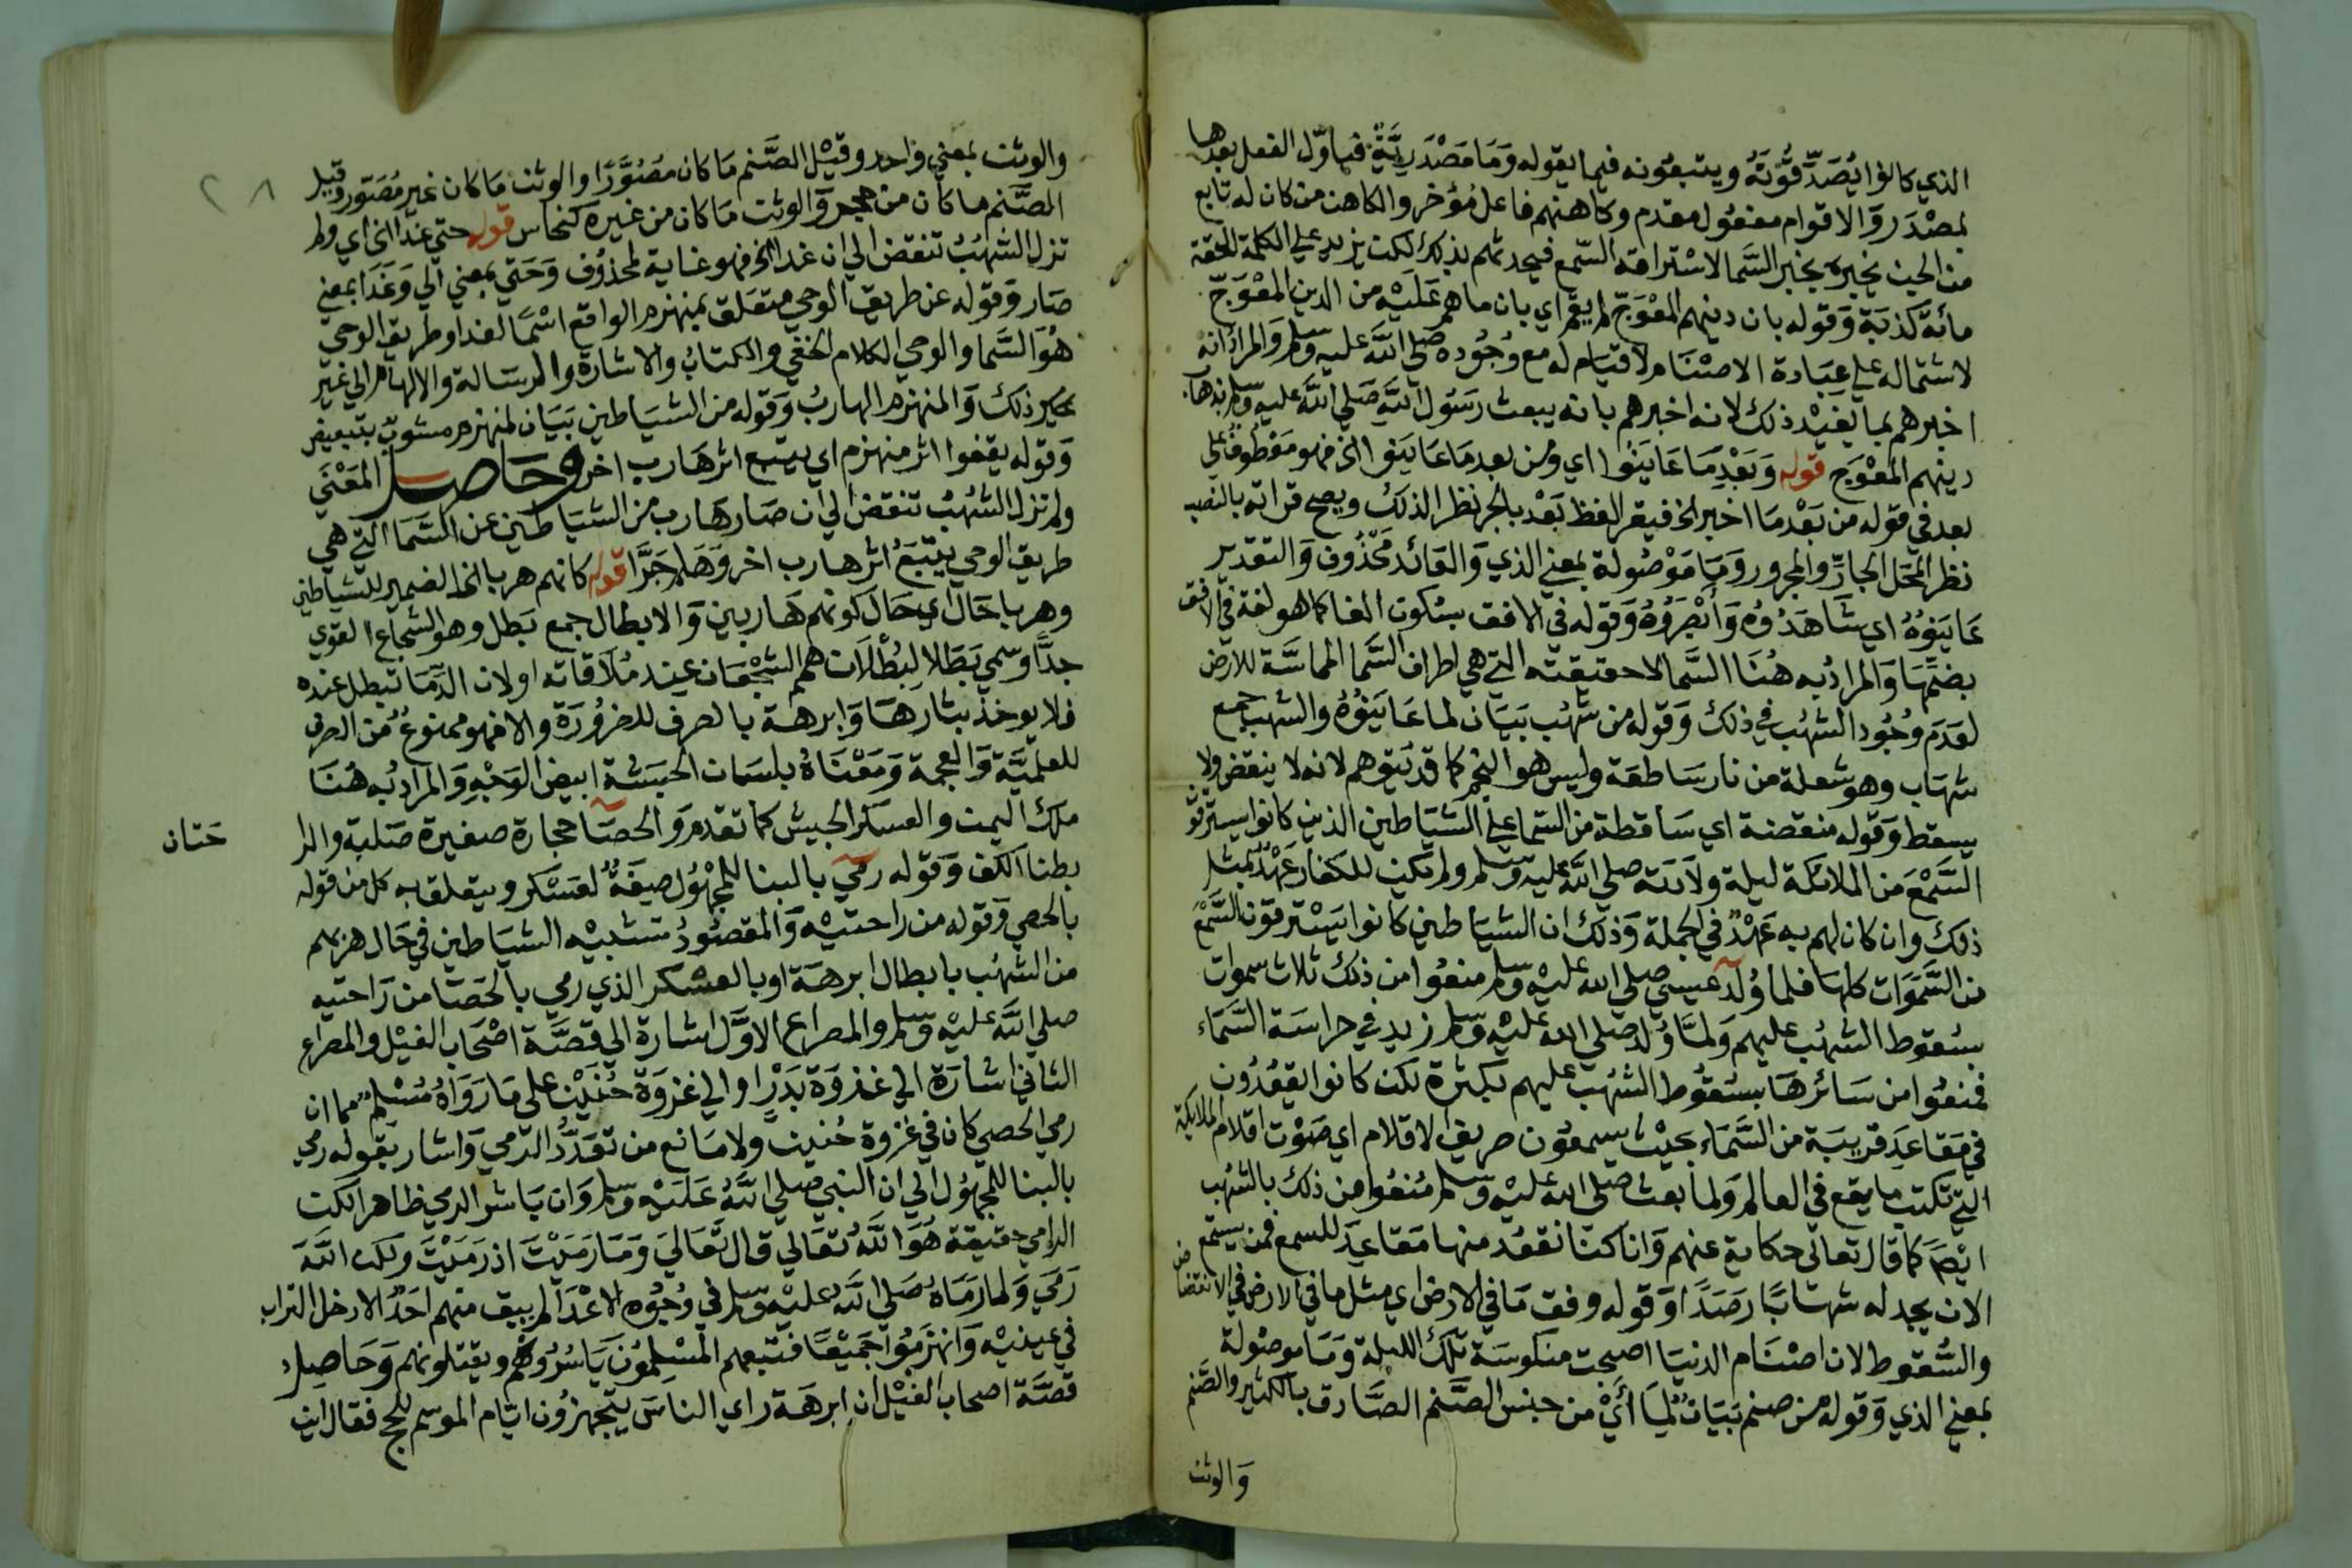 الذي كانوا يُصَدِّقُونَهُ ويتبعُونه فيما يقوله وَمَا مَصْدَريَّةٌ فياوّل الفعل بعدها
بمصْدَر وَالاقوام مفعُول مقدم وكاهنهم فاعل مُؤخر والكاهن من كان له تابع
من الجن يخبره بخبر السَّما لاسْتراقه السّمع فيحدثهم بذلك لكن يزيد علي الكلمة الحقة
مائة كذبَة وَقوله بان دينهم المعْوَجّ لم يقم اي بان ما هم عَلَيْه من الدين المعْوَجّ
لاشتماله علي عِبَادة الاصْنَام لا قيَام له مع وُجُوده صَلي اللّه عليه وسلم وَالمرادُ انه
اخبرهم بما يفيْد ذلك لانه اخبرهم بانه يبعث رسَول اللّه صَلي اللّه عليه وسلم يذهاب
دينهم المعْوَج قوله وَبَعْدِ مَا عَايَنُوا اي وَمن بعدِ مَا عَايَنوا الخ فهو معْطُوفٌ علي
بعد في قوله من بَعْد مَا اخبر الخ فيقر الفظ بَعْد بالجر نظر الذلك ويصح قراته بالنصب
نظر المحَل الجارّ والمجرور وَمَا مَوْصُولة بمعني الذي وَالعَائد مَحْذُوف وَالتقدير
عَاينَوُهُ اي شَاهَدُوُه وَابْصَرُوُهُ وَقوله في الافق بسُكون الفا كما هو لغة في الافق
بضمّهَا وَالمرادُ به هُنَا السَّما لا حقيقته التي هي اطراف السَّما المماسَّة للارض
لعَدَم وُجُود الشهُب في ذلك وَقوله من شهُب بَيَان لما عَايَنوُهُ والشهب جمع
شهَاب وهو شعلة من نار سَاطعَة وليس هو النجم كما قد يُتوهم لانه لا ينقض ولا
يسقط وَقوله منقضة اي سَاقطة من السّما علي الشيَاطين الذين كانوا يسترقو
السَّمْعَ من الملائكة ليلة ولاَدته صلي اللّه عليه وسلم ولم تكن للكفار عَهْدٌ بمثل
ذلك وان كان لهم به عَهْدٌ في الجملة وَذلك ان الشيَاطين كانوا يسْترقون السَّمْعَ
من السَّمَوات كلهَا فلما وُلد عيسي صلي الله عليْه وسلم منعُوا من ذلك ثلاث سموات
بسُقوط الشهُب عليهم وَلمَّا وُلد صلي الله عليْه وَسلم زيد في حراسَة السَّمَاء
فمنعُوا من سَائرهَا بسُقُوط الشهُب عليهم بكثرة لكن كانوا يقعُدُون
في مَقاعدَ قريبَة من السَّمَاء بحَيْث يسمعُون صريف الاقلام اي صَوْت اقلام الملايكة
التي تكتب ما يقع في العالم وَلما بعث صلي الله عليْه وسلم مُنعُوا من ذلك بالشهُب
ايْضا كما قال تعالي حكاية عنهم وَانا كنّا نقعُد منها مَقاعدَ للسمع فمن يستمع
الان يجد له شهَابًا رصَدًا وَقوله وفق مَا في الارض اي مثل ما في الارض في الانقضاض
والسُّقوط لان اصْنَام الدنيَا اصبحت منكوسَة تلك الليلة وَمَا موصُولة
بمعني الذي وَقوله من صنم بَيَانٌ لمَا أيْ من جنس الصَّنم الصَّادق بالكثير والصَّنم
وَالوثن
والوثن بمعني وَاحد وقيْل الصَّنم مَا كان مصُوَّرًا والوثن مَا كان غير مُصَوّر وقيل
الصَّنم ما كان من حجر وَالوثن مَا كان من غيره كنحَاس قوله حتي غدا الخ اي ولم
تزل الشهُبُ تنقض الي ان غدا الخ فهو غاية لمحذوُف وَحَتي بمعني الي وَغَدَا بمعني
صَار وَقوله عن طريق الوحي متعَلق بمنهزم الواقع اسْمًا لغدا وطريق الوحي
هوَ السَّما والوحي الكلام الخفي وَالكتابُ والاشارة والرسَالة والالهام الي غير
غير ذلك وَالمنهزم الهاربُ وَقوله من الشيَاطين بَيَان لمنهزم مشوبٌ بتبعيض
وَقوله يقفوا اثر منهزم اي يتبع اثر هَارب اخر وحَاصل المَعْني
ولم تزل الشهُبُ تنقض الي ان صَار هَارب من الشيَاطين عن السَّمَا التي هي
طريق الوحي يتبَعُ اثر هارب اخر وَهَلم جَرَّا قوله كانهم هربا الخ الضمير للشيَاطين
وهربا حَال اي حَال كونهم هَاربين وَالابطال جمع بَطل وهو الشجَاع القوي
جدَّا وَسمي بَطَلا لبُطْلان همم الشجْعَان عند مُلاَقاته او لان الدّمَا تبطل عنده
فلا يوخذ بثَارهَا وَابرهة بالصرف للضرُورَة والا فهو ممنوعٌ من الصرف
للعلميَّة وَالعجمة وَمَعْنَاهُ بلسَان الحبَشة ابيض الوَجْهِ وَالمرادبُه هُنَا
ملك اليمن والعسكر الجيش كما تقدم وَالحصَا حجارة صغيرة صَلبة والرا
حَتان
بطنا الكف وَقوله رمي بالبنا للمجهُول صِفةٌ لعَسْكر ويتعلق به كل من قوله
بالحصي وَقوله من راحتيْه وَالمقصُودُ تشبيْه الشيَاطين في حَال هزبهم
من الشهُب بابطال ابرهَة او بالعسْكر الذي رمي بالحَصَا من رَاحتيه
صلي اللّه عليْه وسلم والمصراع الاوَّل اشارة الي قصَّة اصْحَاب الفيْل والمصراع
الثاني اشارَة الي غذوَة بَدْرٍ او الي غزوَة حُنيْن علي مَا رَوَاهُ مُسْلم مما ان
رمي الحصي كان في غزوة حُنين ولا مَانع من تعَدّد الرّمي وَاشار بقوله رمي
بالبنا للمجهُول الي ان النبي صلي اللّهُ عَلَيْه وسلم وَان بَاشر الرمي ظاهر الكن
الرامي حقيقة هُوَ اللّهُ تعَالي قال تعَالي وَمَا رَمَيْتَ اذ رَمَيْتَ ولكن اللّهَ
رَمَي وَلما رَمَاهُ صَلي اللّهُ عليْه وسلم في وُجُوه الاعْدَا لم يبق منهم احَدٌ الا دخل التراب
في عينيْه وَانهزَمُوا جَميْعًا فتبعهم المسْلمُونَ يَاسرُوُهم ويقتلونهم وَحَاصِل
قصَّة اصحاب الفيْل ان ابرهَة راي الناسَ يتجهزُون ايّام الموسم للحج فقال اين